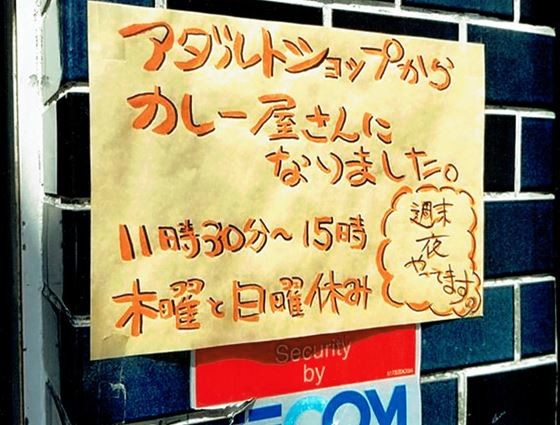 アダルトショップから
カレー屋さんに
なりました。
11時30分～15時
木曜と日曜休み
週末
夜
やってます。
Security
by